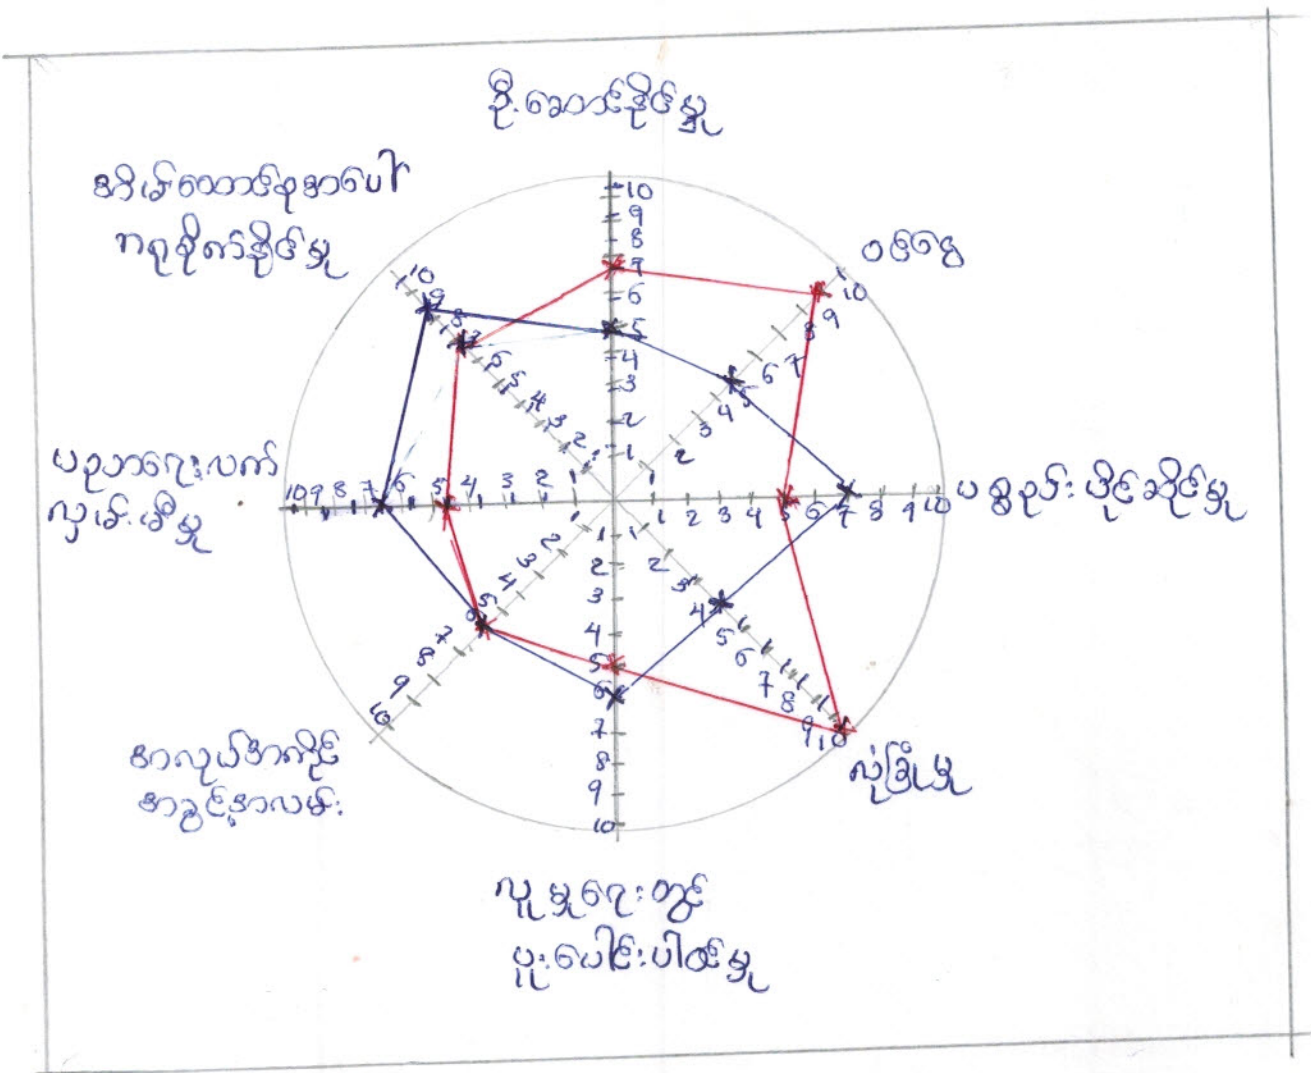 ဦးဆောင်နိုင်မှု
အိမ်ထောင်စုအပေါ်
ဂရုစိုက်နိုင်မှု
ဝင်ငွေ
ပညာရေးလက်
လှမ်းမီမှု
ပစ္စည်းပိုင်ဆိုင်မှု
အလုပ်အကိုင်
အခွင့်အလမ်း
လုံခြုံမှု
လူမှုရေးတွင်
ပူးပေါင်းပါဝင်မှု
10
9
8
7
6
5
4
3
2
1
10
9
8
7
6
5
4
3
2
1
2
3
4
5
6
7
8
9
10
1
2
3
4
5
6
7
8
9
10
10 9 8 7 6 5 4 3 2 1
1 2 3 4 5 6 7 8 9 10
1
2
3
4
5
6
7
8
9
10
1
2
3
4
5
6
7
8
9
10